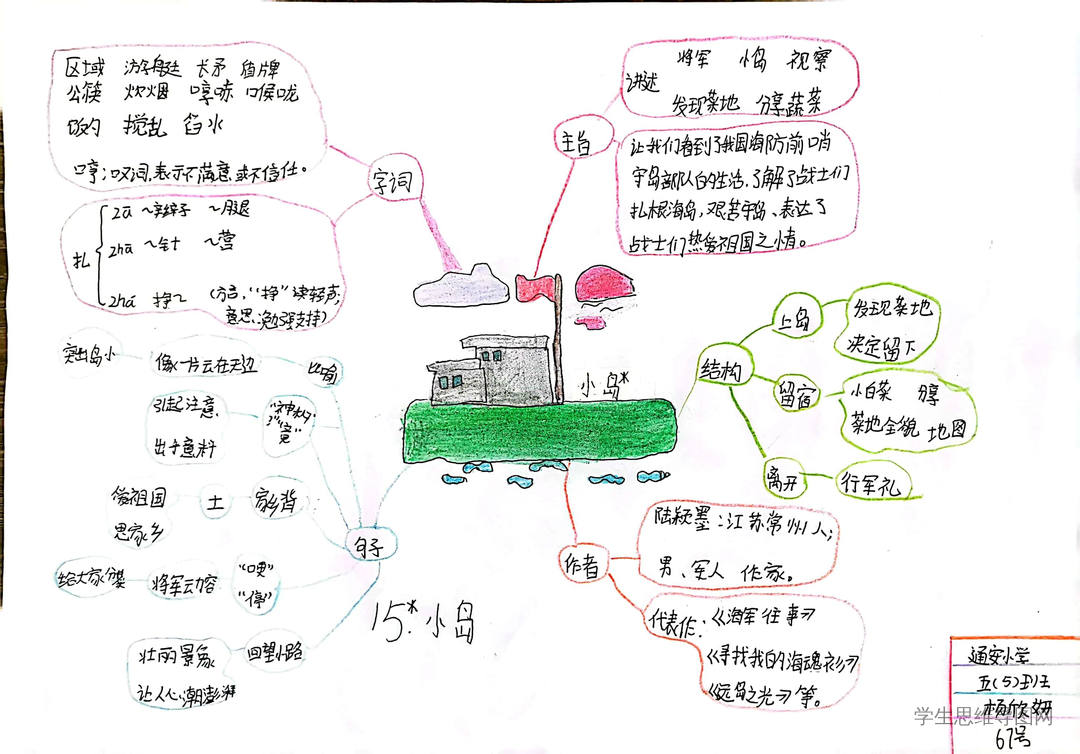 区域 游艇 长矛 盾牌
公筷 炊烟 哼哧 喉咙
搅乱 馅水
哼:叹词,表示不满意或不信任。
字词
扎
zā ~辫子 ~腿
zhā ~针 ~营
zhá 挣~ (方言,“挣”读轻声;
意思:勉强支持)
主旨
讲述
将军 小岛 视察
发现菜地 分享蔬菜
让我们看到了我国海防前哨
守岛部队的生活,了解了战士们
扎根海岛,艰苦守岛、表达了
战士们热爱祖国之情。
小岛*
结构
上岛
发现菜地
决定留下
留宿
小白菜 分享
菜地全貌 地图
离开
行军礼
作者
陆颖墨:江苏常州人;
男、军人 作家。
代表作:《海军往事》
《寻找我的海魂衫》
《远岛之光》等。
句子
比喻
像一片云在天边
突出岛小
“神秘”
“竟”
引起注意
出乎意料
家乡背
土
爱祖国
思家乡
“哽”
“停”
将军动容
给大家分菜
回望小路
壮丽景象
让人心潮澎湃
15.*小岛
通安小学
五(5)班
杨欣妍
67号
学生思维导图网